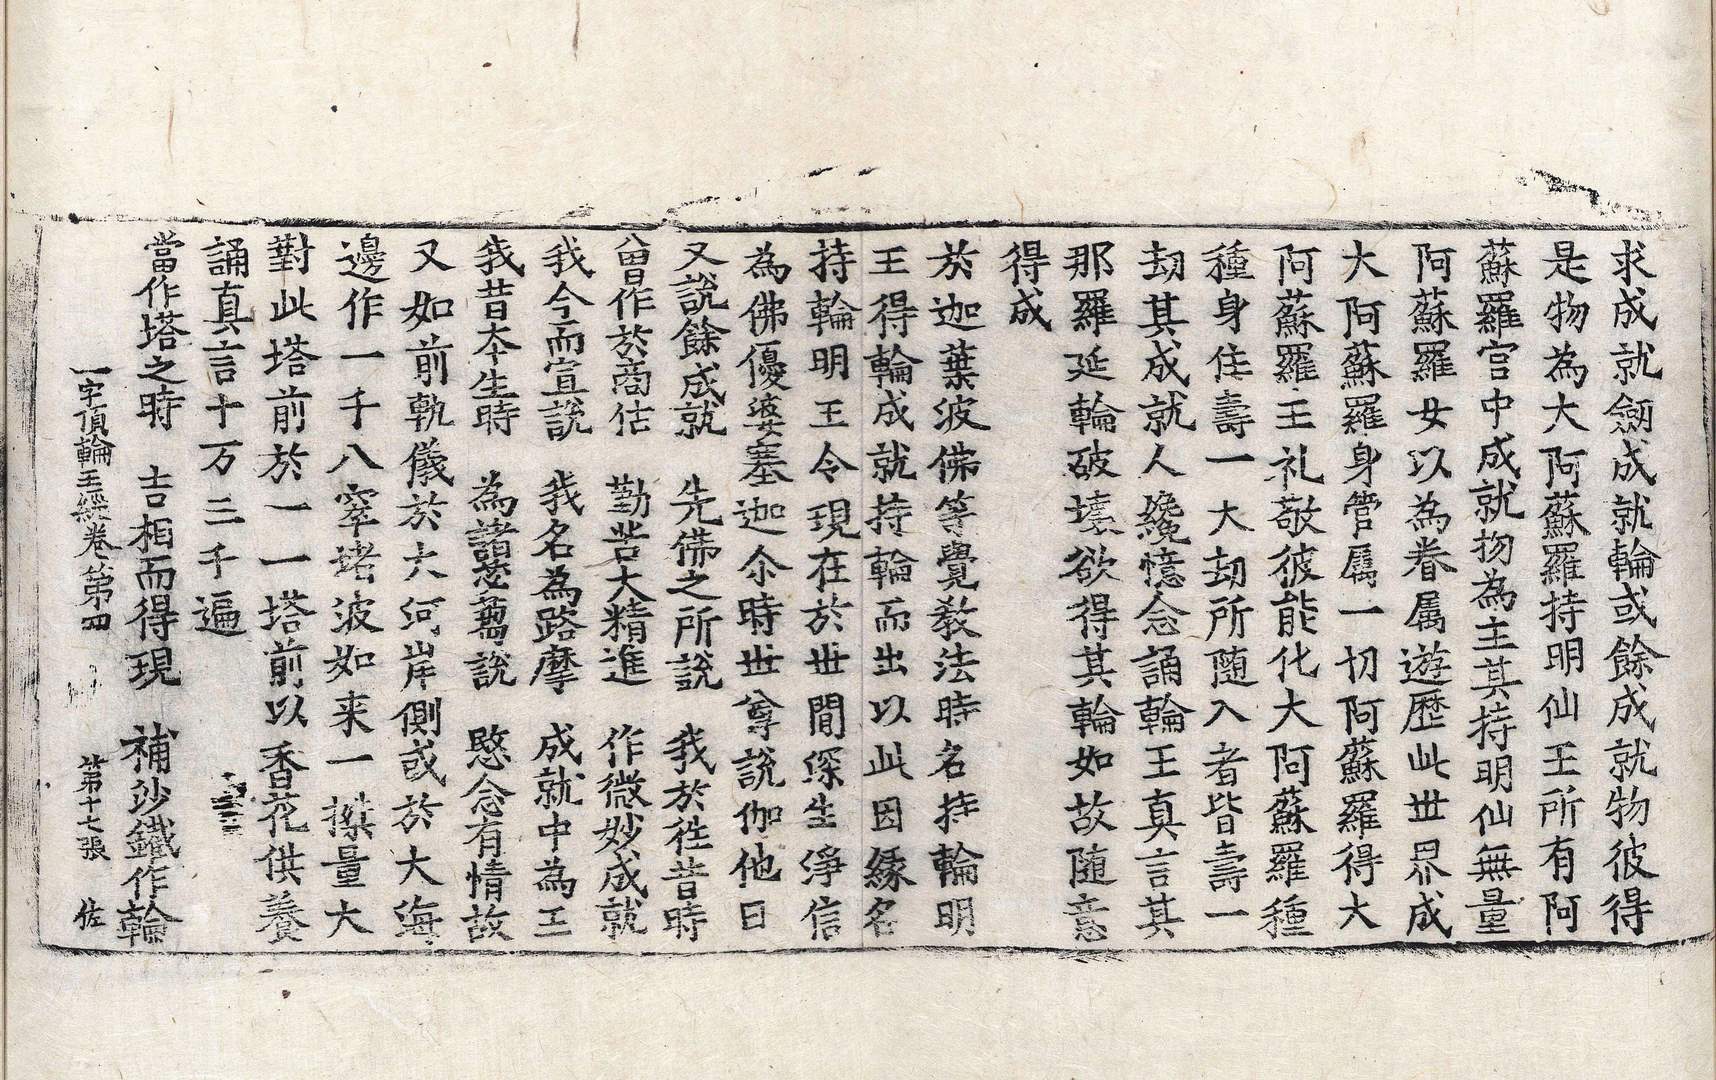 求成就劒成就輪或餘成就物彼得
是物為大阿蘇羅持明仙王所有阿
蘇羅宮中成就物為主其持明仙無量
阿蘇羅女以為眷属遊歷此丗界成
大阿蘇羅身管属一切阿蘇羅得大
阿蘇羅王礼敬彼能化大阿蘇羅種
種身住壽一大劫所随入者皆壽一
劫其成就人纔憶念誦輪王真言其
那羅延輪破壊欲得其輪如故随意
得成
於迦葉波佛等覺教法時名持輪明
王得輪成就持輪而出以此因縁名
持輪明王令現在於丗間深生淨信
為佛優婆塞迦尒時丗尊說伽他曰
又說餘成就 先佛之所說 我於往昔時
曽作於商估 勤苦大精進 作微妙成就
我今而宣說 我名為路摩 成就中為王
我昔夲生時 為諸菩薩說 愍念有情故
又如前軌儀於大河岸側或於大海
邊作一千八窣堵波如来一搩量大
對此塔前於一一塔前以香花供養
誦真言十万三千遍
當作塔之時 吉相而得現 補沙鐵作輪
一字頂輪王經卷第四 第十七張 佐